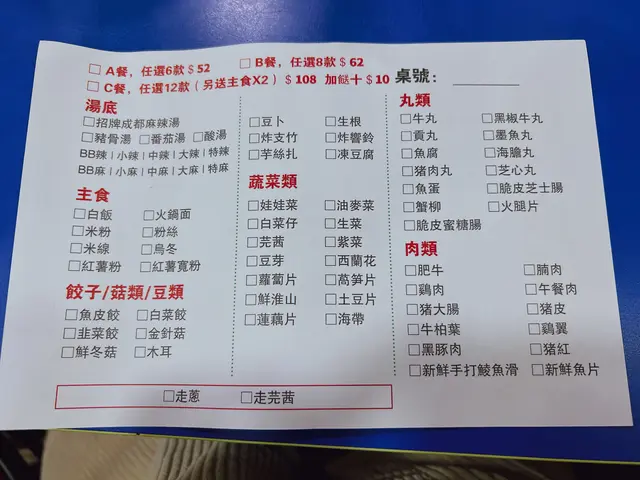 □ A餐，任選6款 $ 52 □ B餐，任選8款 $ 62
□ C餐，任選12款（另送主食X2）$ 108 加餸十 $ 10 桌號：
湯底
□招牌成都麻辣湯
□豬骨湯 □番茄湯 □酸湯
BB辣 | 小辣 | 中辣 | 大辣 | 特辣
BB麻 | 小麻 | 中麻 | 大麻 | 特麻
主食
□白飯 □火鍋面
□米粉 □粉絲
□米線 □烏冬
□紅薯粉 □紅薯寬粉
餃子/菇類/豆類
□魚皮餃 □白菜餃
□韭菜餃 □金針菇
□鮮冬菇 □木耳
□豆卜 □生根
□炸支竹 □炸響鈴
□芋絲扎 □凍豆腐
蔬菜類
□娃娃菜 □油麥菜
□白菜仔 □生菜
□芫茜 □紫菜
□豆芽 □西蘭花
□蘿蔔片 □萵笋片
□鮮淮山 □土豆片
□蓮藕片 □海帶
丸類
□牛丸 □黑椒牛丸
□貢丸 □墨魚丸
□魚腐 □海膽丸
□豬肉丸 □芝心丸
□魚蛋 □脆皮芝士腸
□蟹柳 □火腿片
□脆皮蜜糖腸
肉類
□肥牛 □腩肉
□鷄肉 □午餐肉
□猪大腸 □猪皮
□牛柏葉 □鷄翼
□黑豚肉 □猪紅
□新鮮手打鯪魚滑 □新鮮魚片
□走蔥 □走芫茜